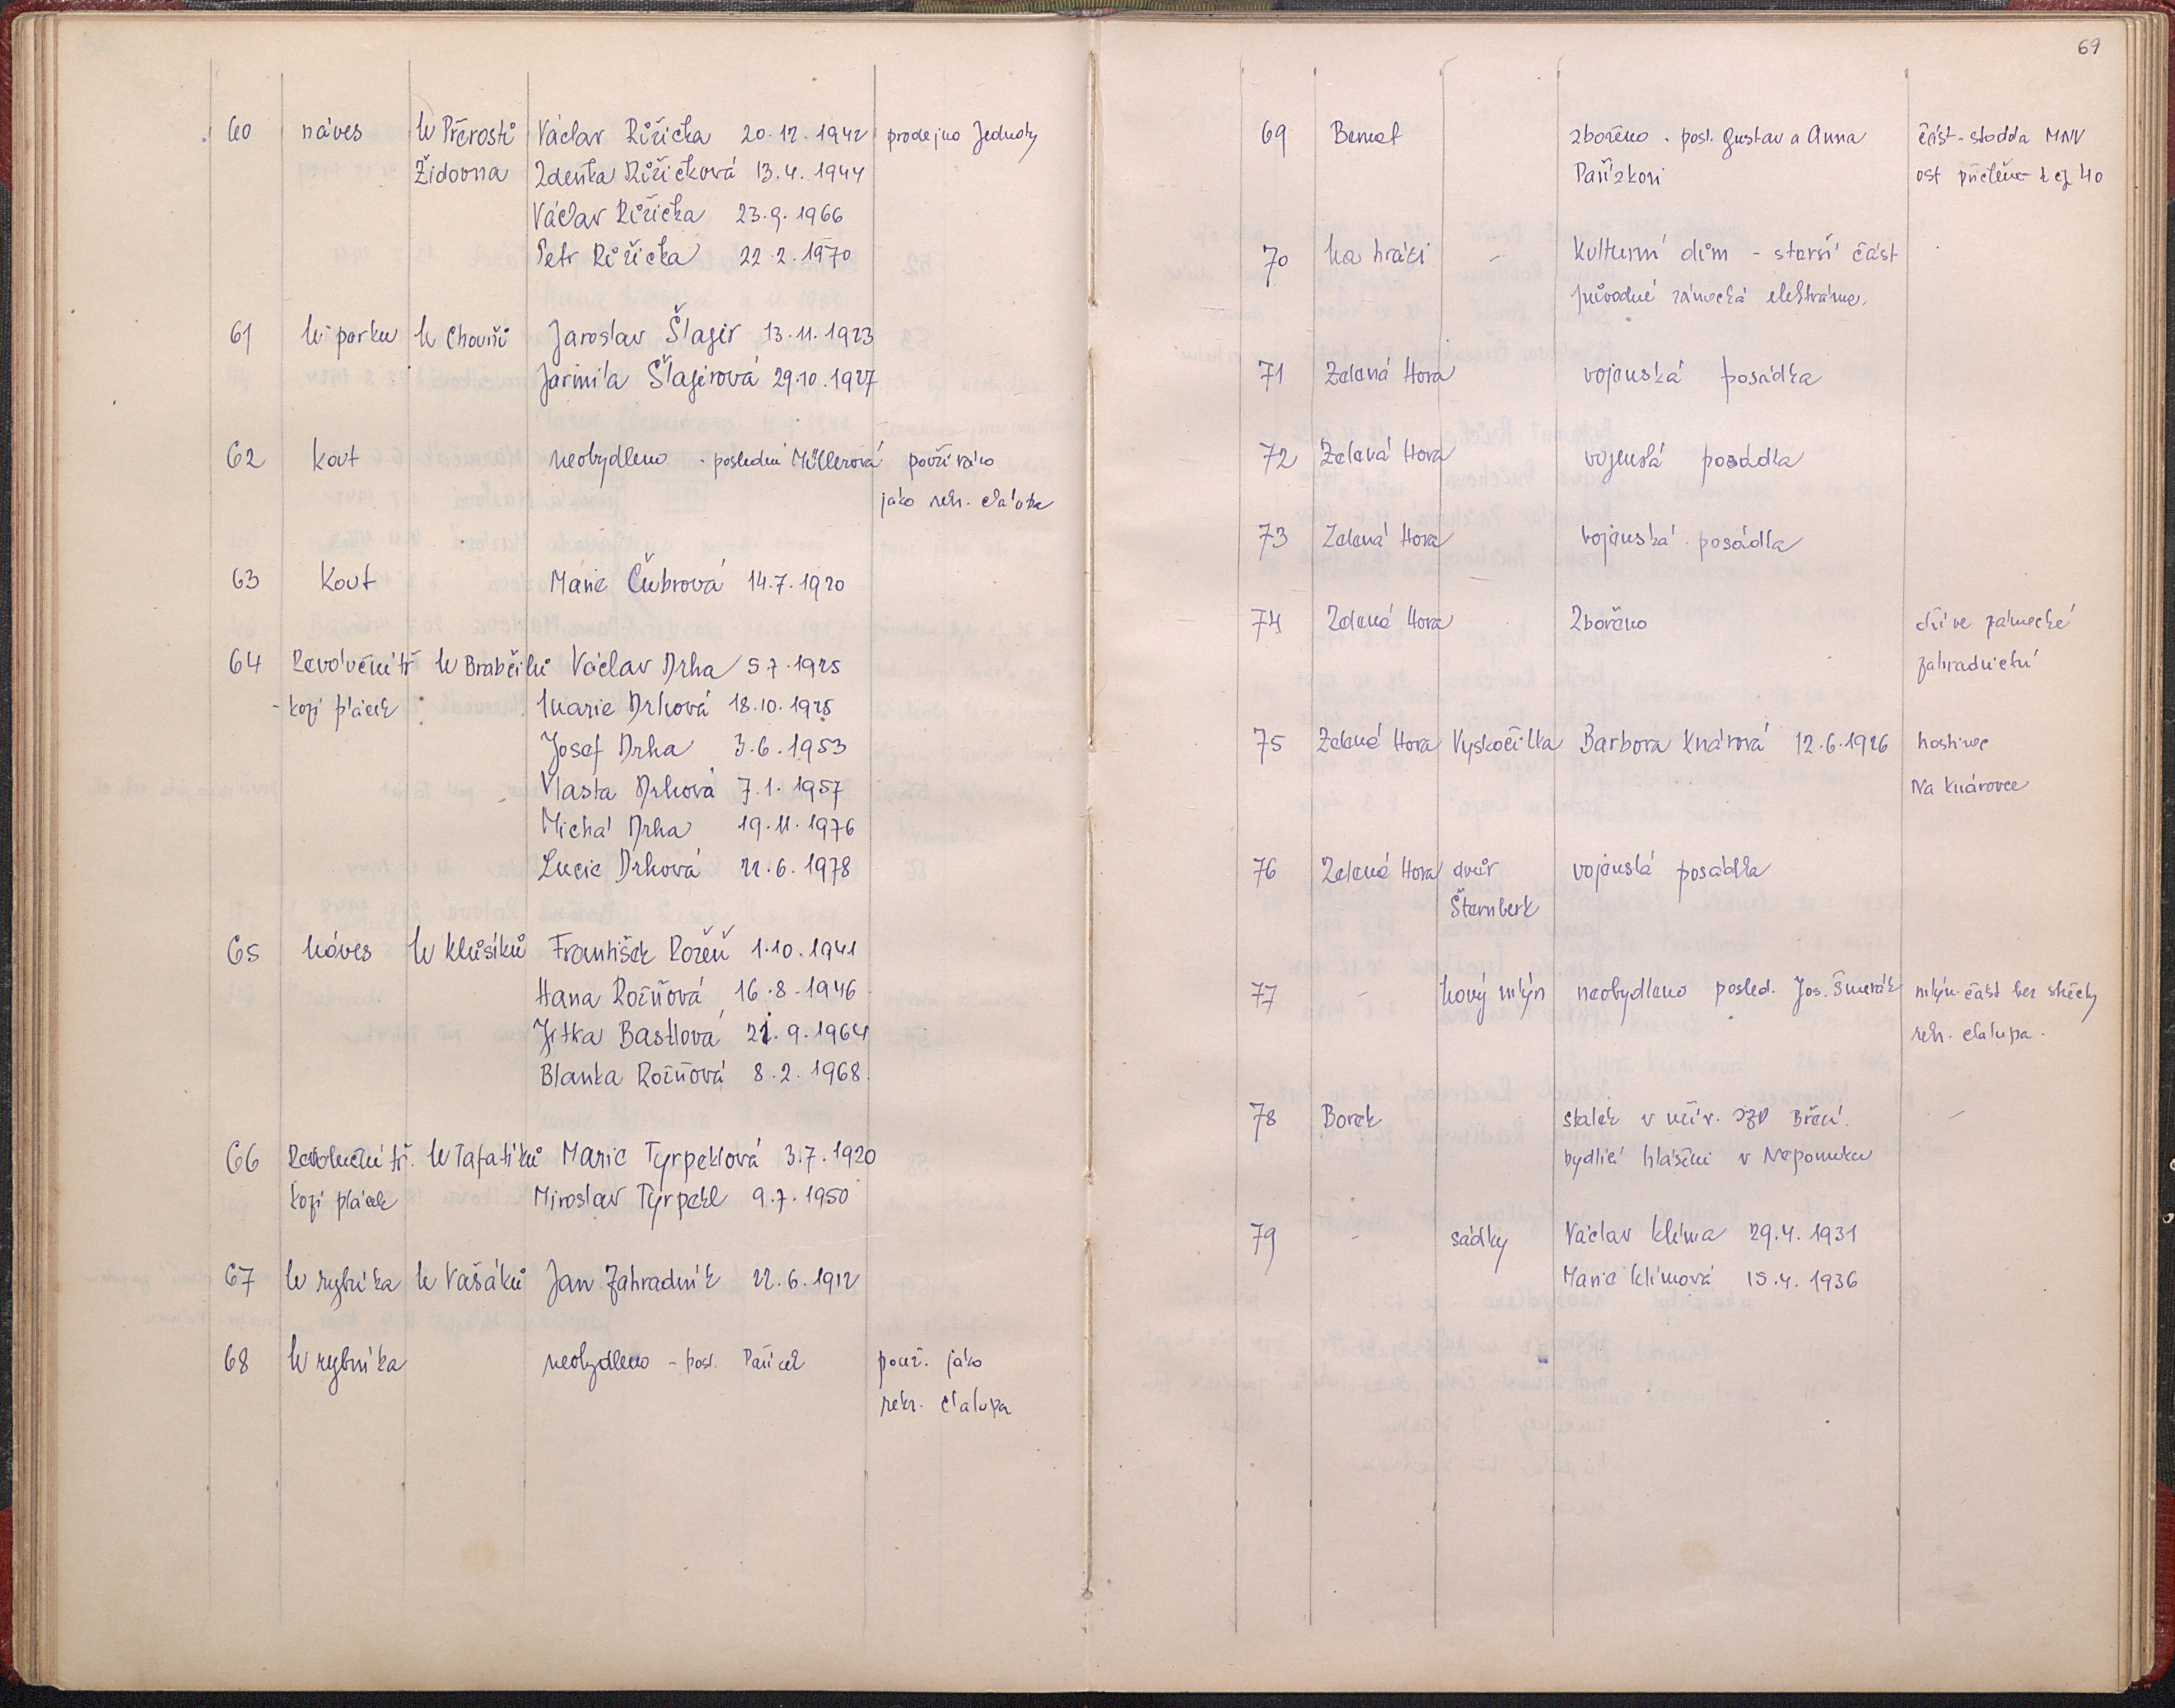 60 náves U Přerostů Václav Růžička 20.12.1942 prodejna Jednoty
Židovna Zdeňka Růžičková 13.4.1944
Václav Růžička 23.9.1966
Petr Růžička 22.2.1970
61 U parku U Chouňů Jaroslav Šlagir 13.11.1923
Jarmila Šlagirová 29.10.1927
62 Kout neobydleno - poslední Müllerová používáno
jako rekr. chalupa
63 Kout Marie Čubrová 14.7.1920
64 Revoluční tř U Brabčíků Václav Drha 5.7.1925
- Kozí plácek Marie Drhová 18.10.1925
Josef Drha 3.6.1953
Vlasta Drhová 7.1.1957
Michal Drha 19.11.1976
Lucie Drhová 22.6.1978
65 Náves U Klusíků František Rožeň 1.10.1941
Hana Rožňová 16.8.1946
Jitka Bastlová 21.9.1964
Blanka Rožňová 8.2.1968.
66 Revoluční tř. U Tafatíků Marie Tyrpeklová 3.7.1920
Kozí plácek Miroslav Tyrpekl 9.7.1950
67 U rybníka U Vašáků Jan Zahradník 22.6.1912
68 U rybníka neobydleno - posl. Paříček použ. jako
rekr. chalupa
69
69 zbořeno. posl. Gustav a Anna část - stodola MNV
Pařízkovi ost přičleněno k čp 40
70 Na hrázi - Kulturní dům - starší část
původně zámecká elektrárna.
71 Zelená Hora vojenská posádka
72 Zelená Hora vojenská posádka
73 Zelená Hora vojenská posádka
74 Zelená Hora Zbořeno dříve zámecké
zahradnictví
75 Zelená Hora Vyskočilka Barbora Knárová 12.6.1926 hostinec
Na Knárovce
76 Zelená Hora dvůr vojenská posádka
Šternberk
77 - Nový mlýn neobydleno posled. Jos. Šmerák mlýn. část bez střechy
rekr. chalupa.
78 Borek statek v užív. JZD -
bydlící hlášeni v Nepomuku
79 - sádky Václav Klíma 29.4.1931
Marie Klímová 15.4.1936